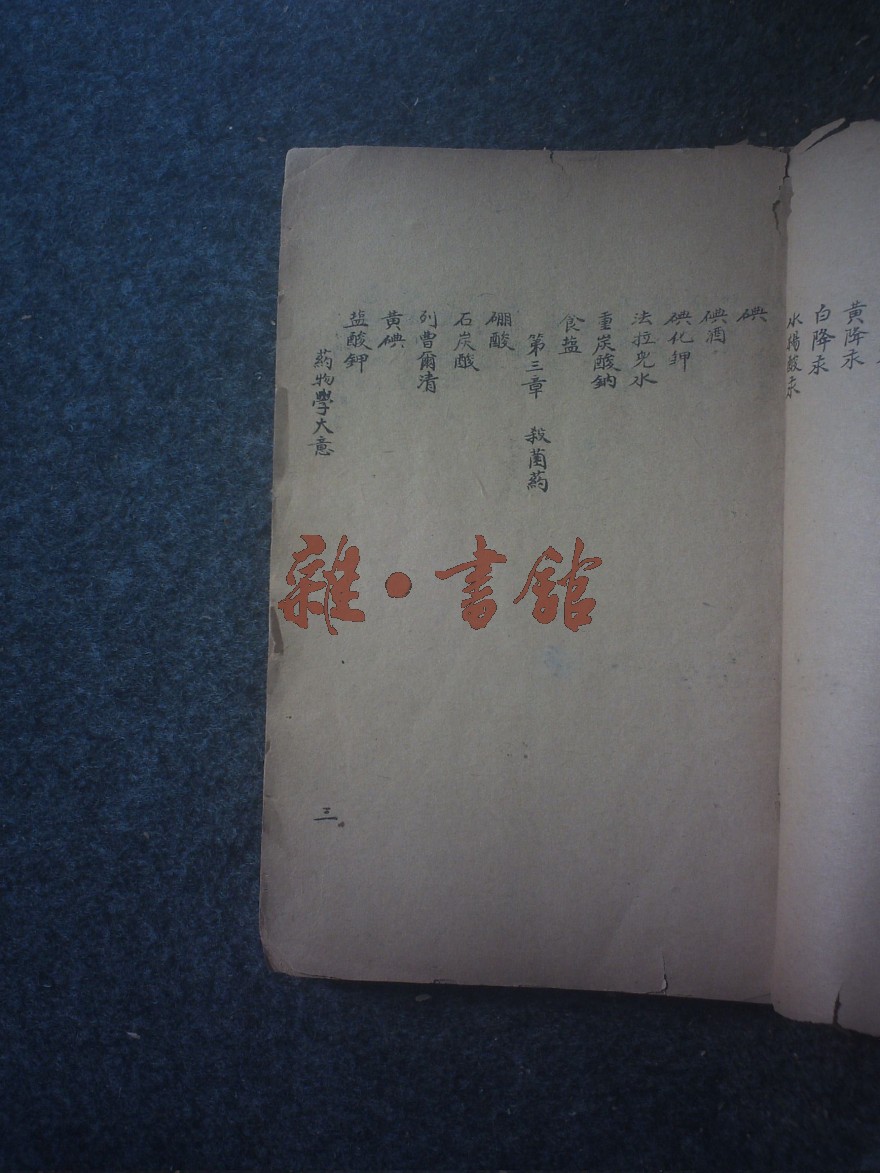 黃降汞
白降汞
水楊酸汞
碘
碘酒
碘化鉀
法拉兜水
重炭酸鈉
食盐
第三章 殺菌藥
硼酸
石炭酸
列曹爾清
黃碘
盐酸鉀
葯物學大意
三
雜·書館